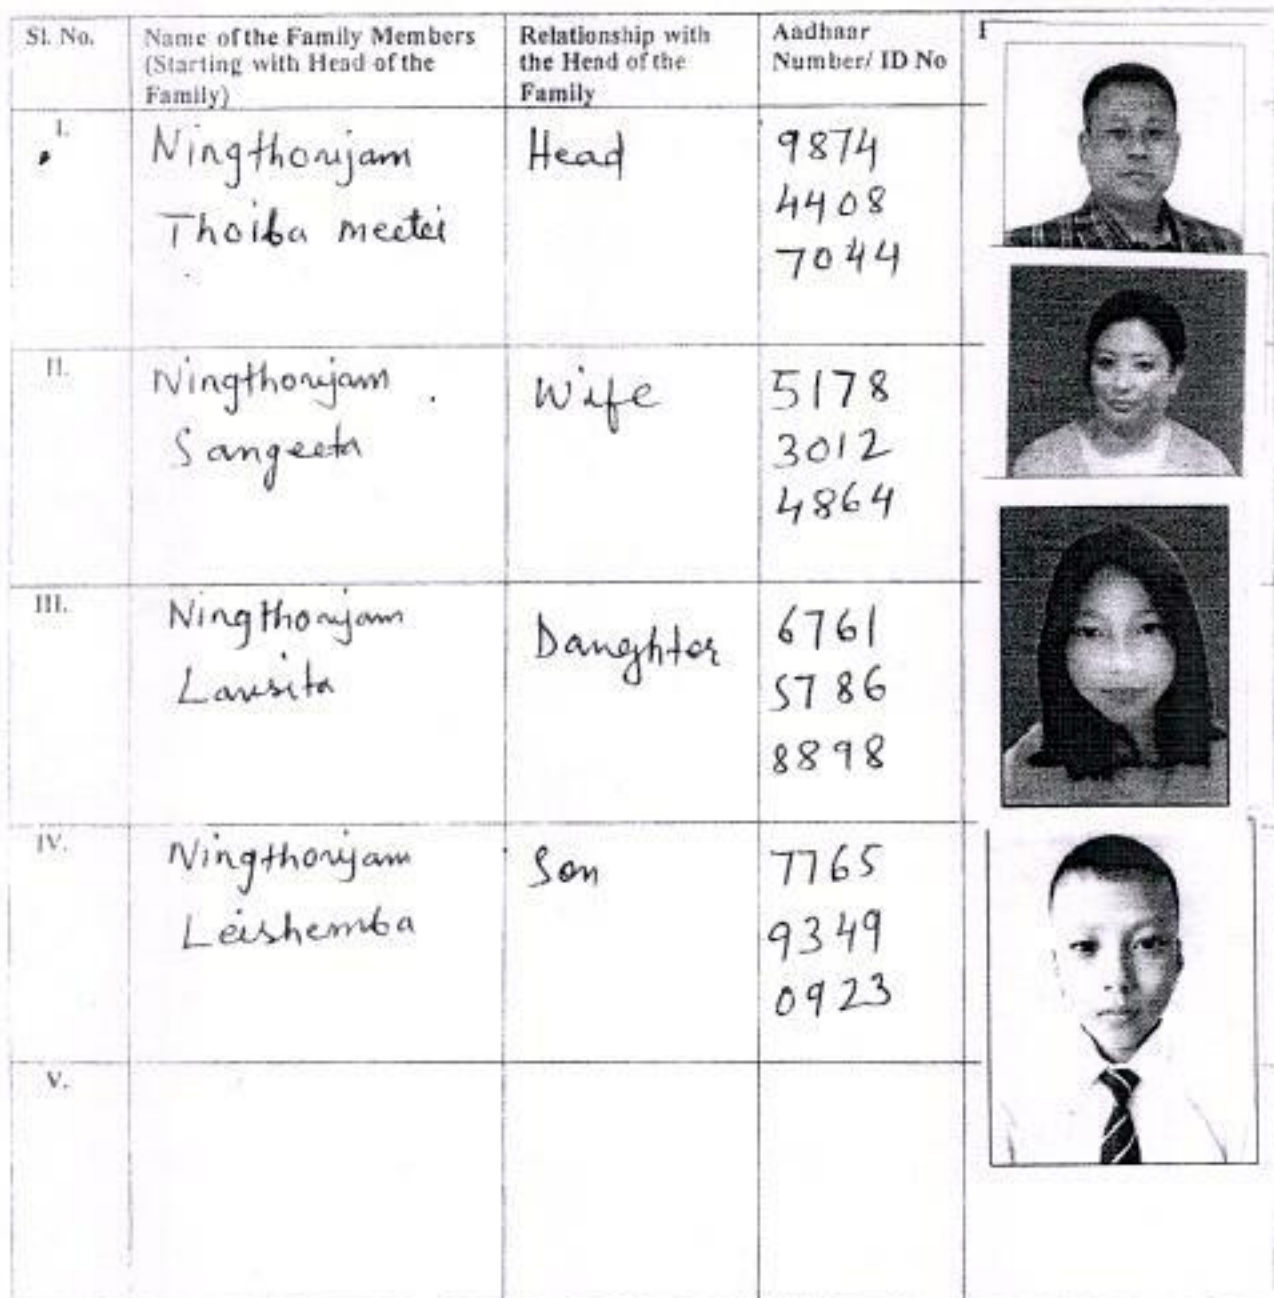 Sl. No.
Name of the Family Members
(Starting with Head of the
Family)
Relationship with
the Head of the
Family
Aadhaar
Number/ ID No
I.
Ningthoujam
Thoiba meetei
Head
9874
4408
7044
II.
Ningthoujam
Sangeeta
Wife
5178
3012
4864
III.
Ningthoujam
Daughter
6761
5786
8898
IV.
Ningthoujam
Leishemba
Son
7765
9349
0923
V.